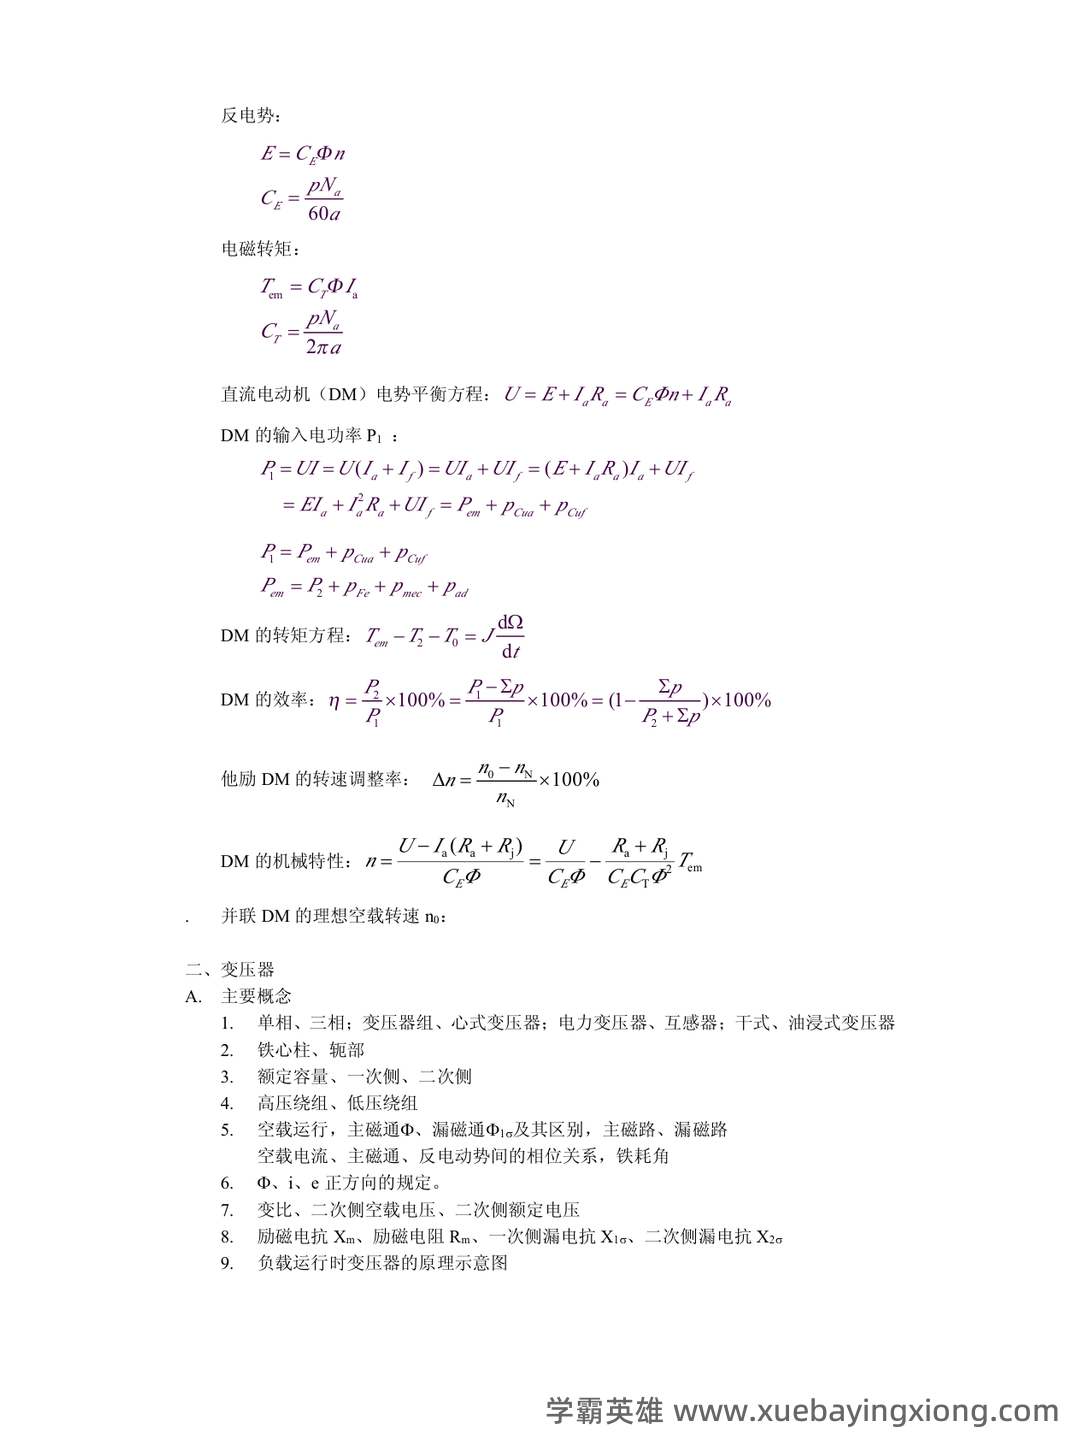 反电势：
E = C_EΦn
C_E = pN_a / 60a
电磁转矩：
T_em = C_TΦI_a
C_T = pN_a / 2πa
直流电动机（DM）电势平衡方程：U = E + I_aR_a = C_EΦn + I_aR_a
DM 的输入电功率 P₁ ：
P₁ = UI = U(I_a + I_f) = UI_a + UI_f = (E + I_aR_a)I_a + UI_f
= EI_a + I_a²R_a + UI_f = P_em + p_Cua + p_Cuf
P₁ = P_em + p_Cua + p_Cuf
P_em = P₂ + p_Fe + p_mec + p_ad
DM 的转矩方程：T_em − T₂ − T₀ = J dΩ/dt
DM 的效率：η = P₂/P₁ ×100% = (P₁ − Σp)/P₁ ×100% = (1− Σp/(P₂ + Σp))×100%
他励 DM 的转速调整率： Δn = (n₀ − n_N)/n_N ×100%
DM 的机械特性：n = (U − I_a(R_a + R_j))/(C_EΦ) = U/(C_EΦ) − (R_a + R_j)/(C_EC_TΦ²) T_em
. 并联 DM 的理想空载转速 n₀：
二、变压器
A. 主要概念
1. 单相、三相；变压器组、心式变压器；电力变压器、互感器；干式、油浸式变压器
2. 铁心柱、轭部
3. 额定容量、一次侧、二次侧
4. 高压绕组、低压绕组
5. 空载运行，主磁通Φ、漏磁通Φ₁σ及其区别，主磁路、漏磁路
空载电流、主磁通、反电动势间的相位关系，铁耗角
6. Φ、i、e 正方向的规定。
7. 变比、二次侧空载电压、二次侧额定电压
8. 励磁电抗 Xm、励磁电阻 Rm、一次侧漏电抗 X₁σ、二次侧漏电抗 X₂σ
9. 负载运行时变压器的原理示意图
学霸英雄 www.xuebayingxiong.com